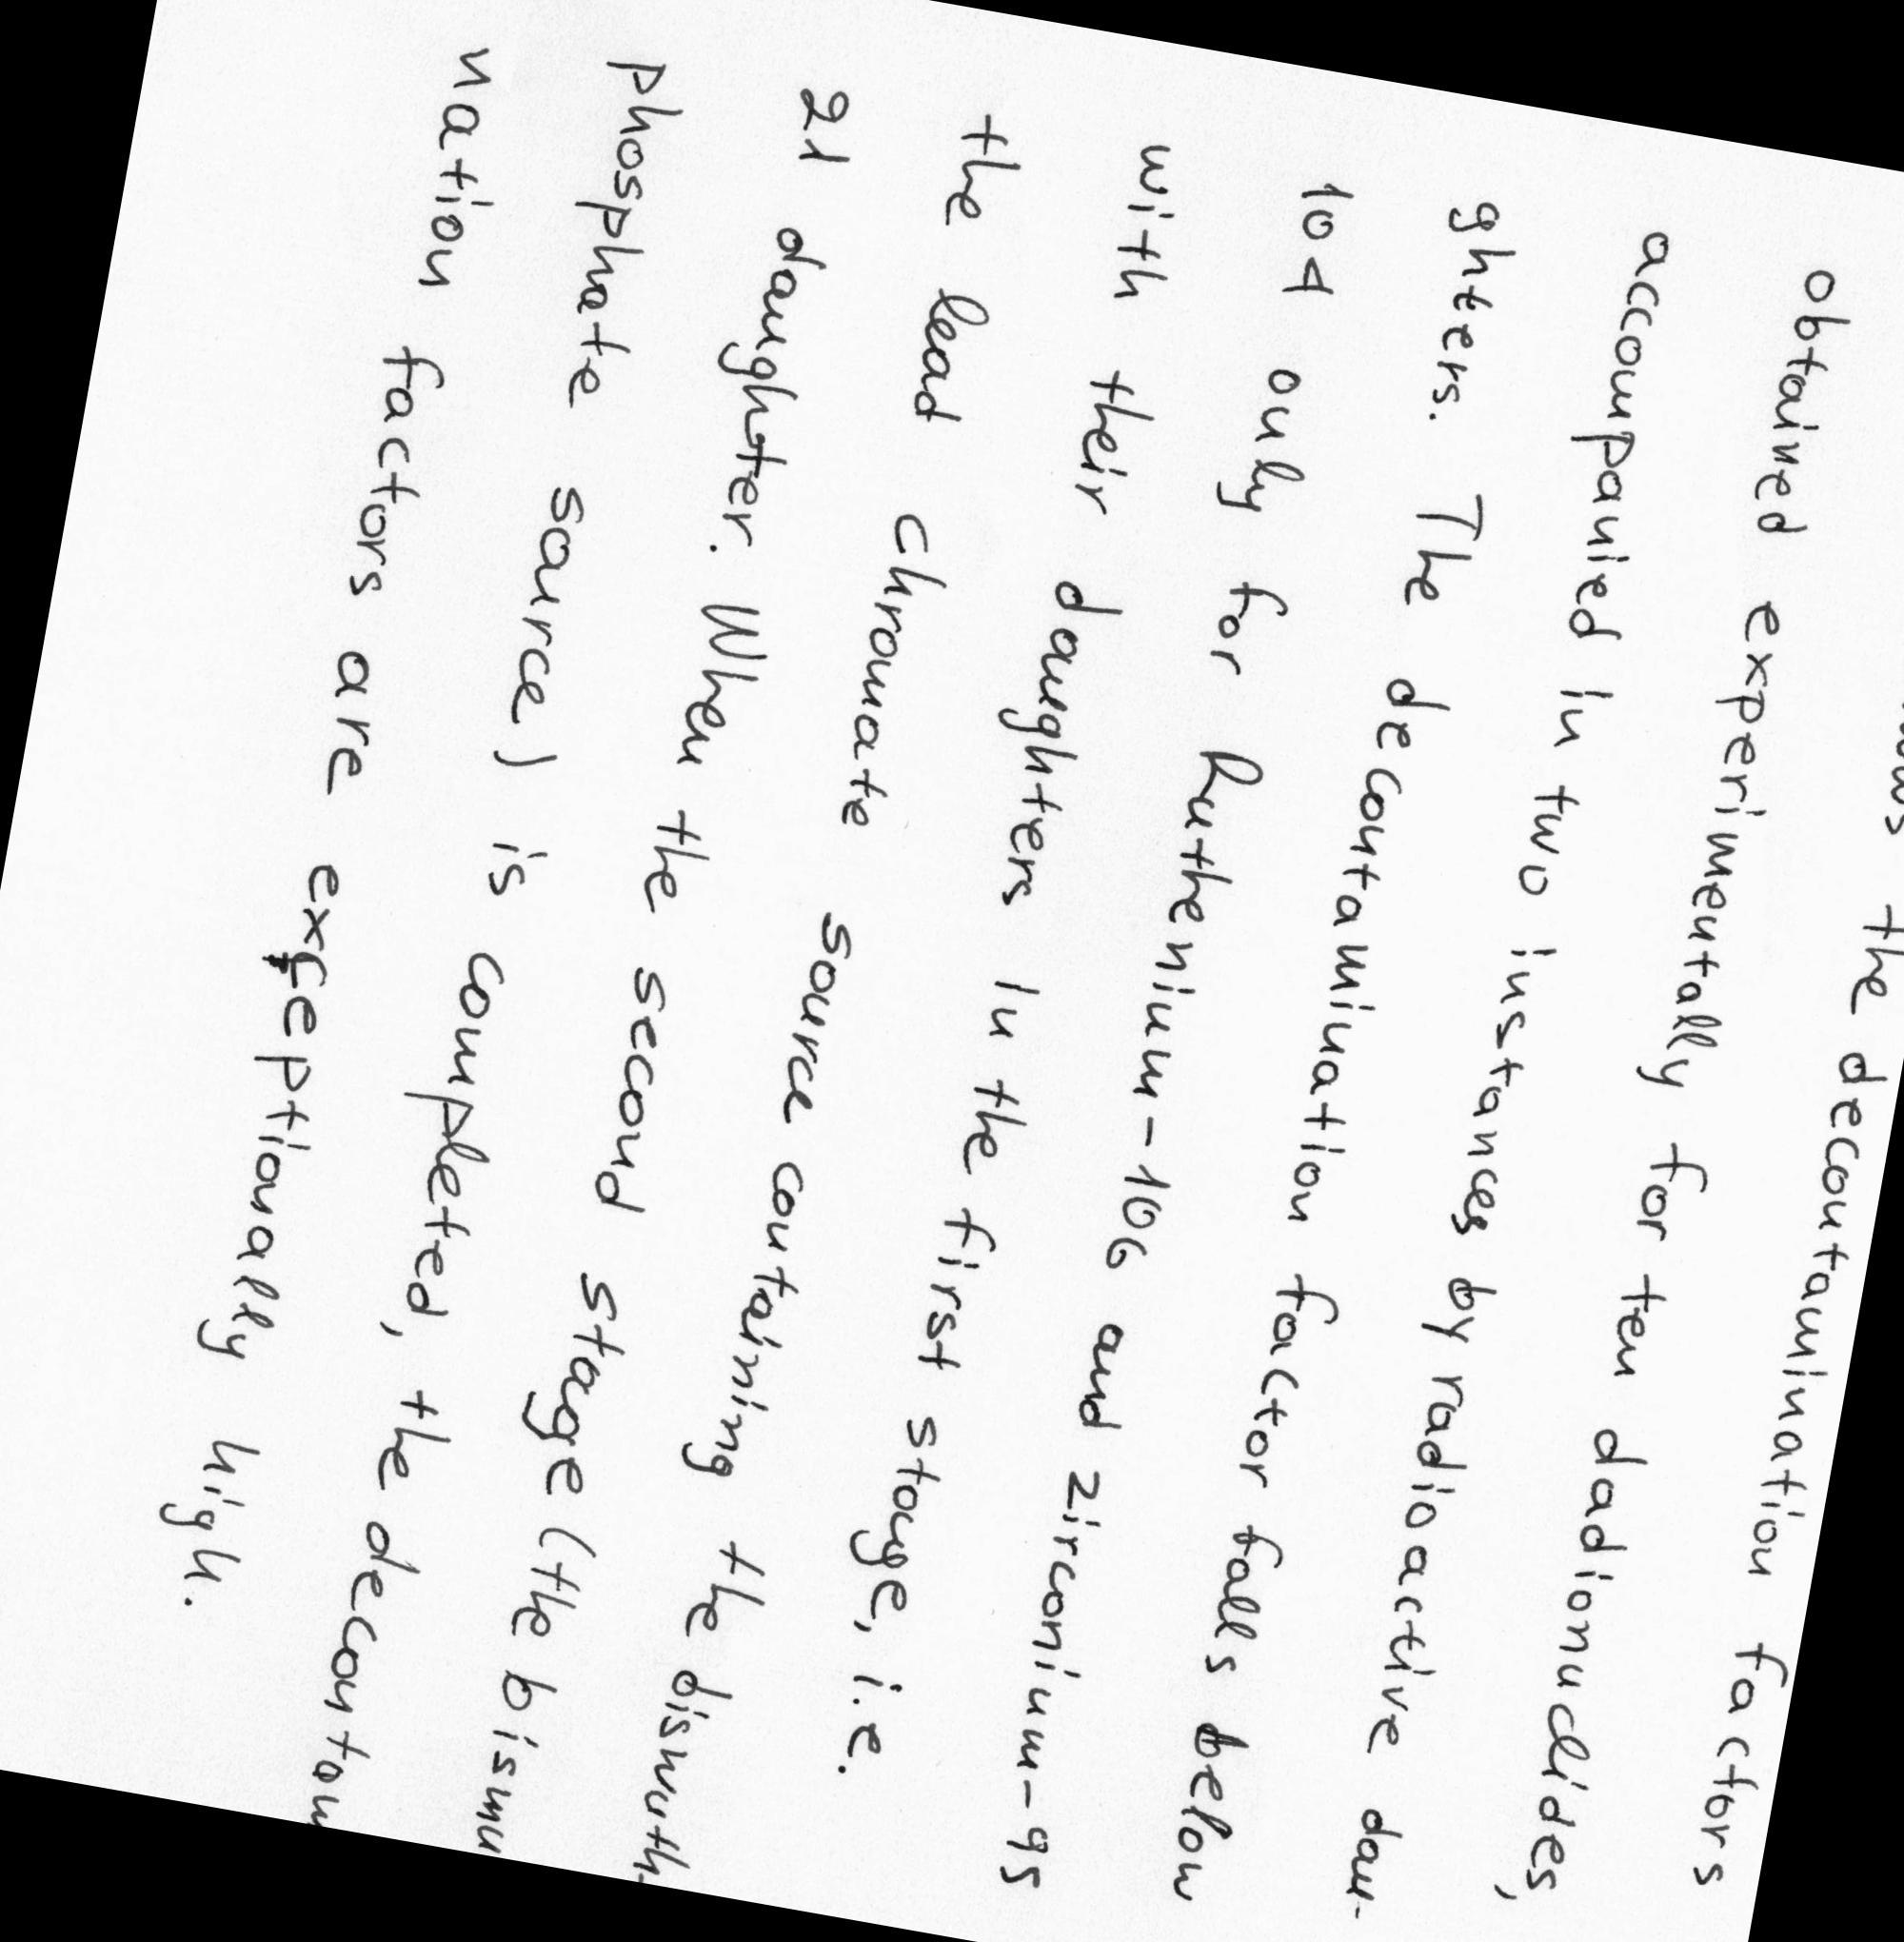 the decontamination factors
obtained experimentally for ten dadionuclides,
accompanied in two instances by radioactive dau-
ghters. The decontamination factor falls below
104 only for Ruthenium-106 and zirconium-95
with their daughters in the first stage, i.e.
the lead chromate source containing the bismuth-
21 daughter. When the second stage (the bismu
phosphate source) is completed, the decontam
nation factors are exceptionally high.